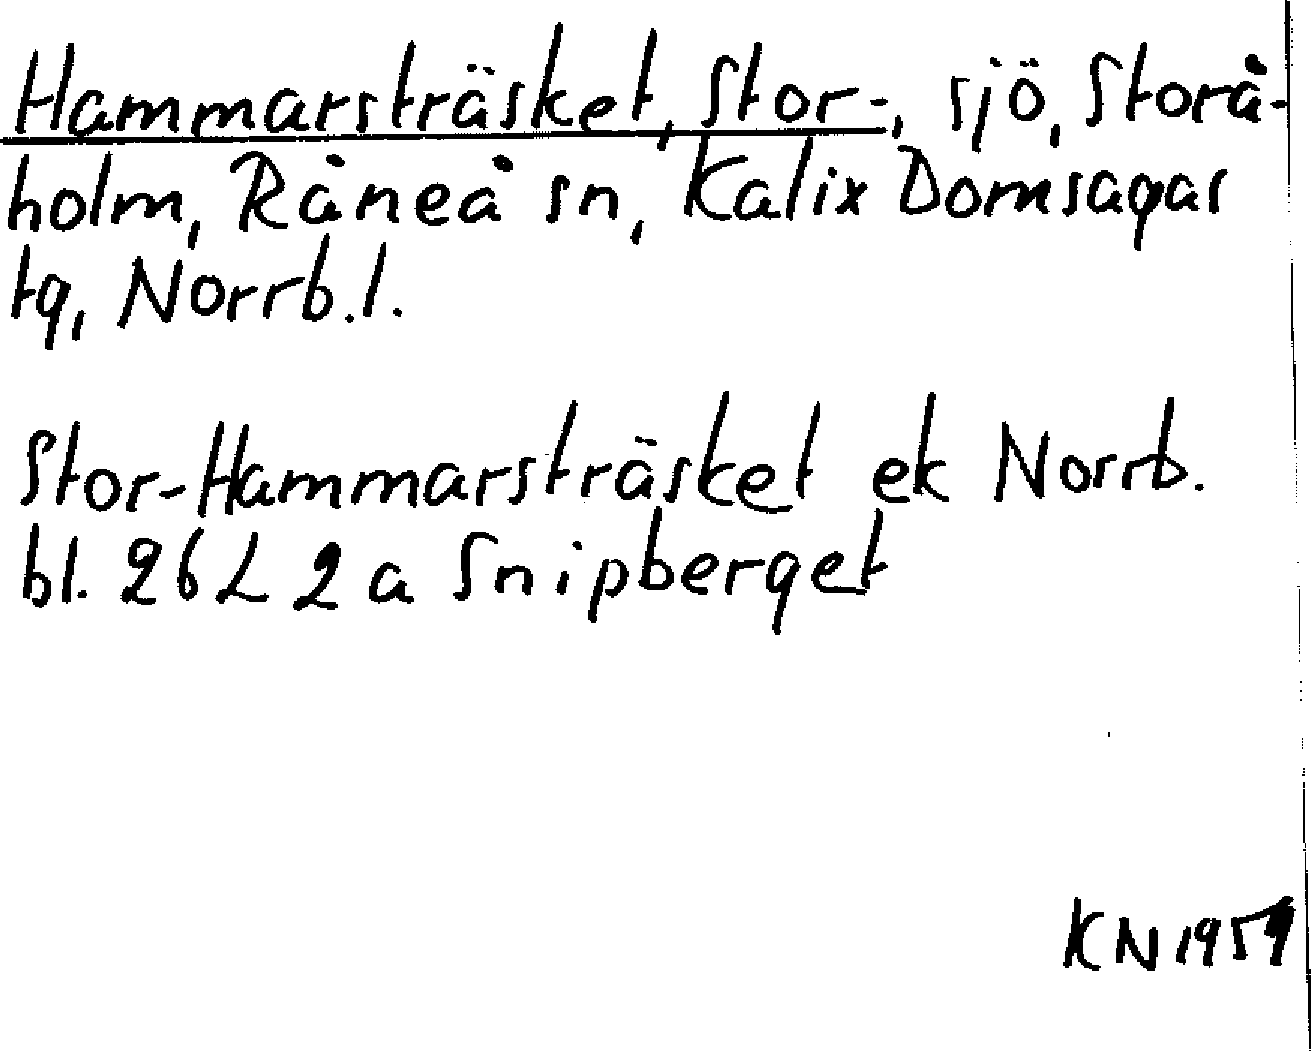 Hammarsträsket, Stor-, sjö, Storå-
holm, Råneå sn, Kalix Domsagas
tg, Norrb.l.
Stor-Hammarsträsket ek Norrb.
bl. 26L 2a Snipberget
KN 1959